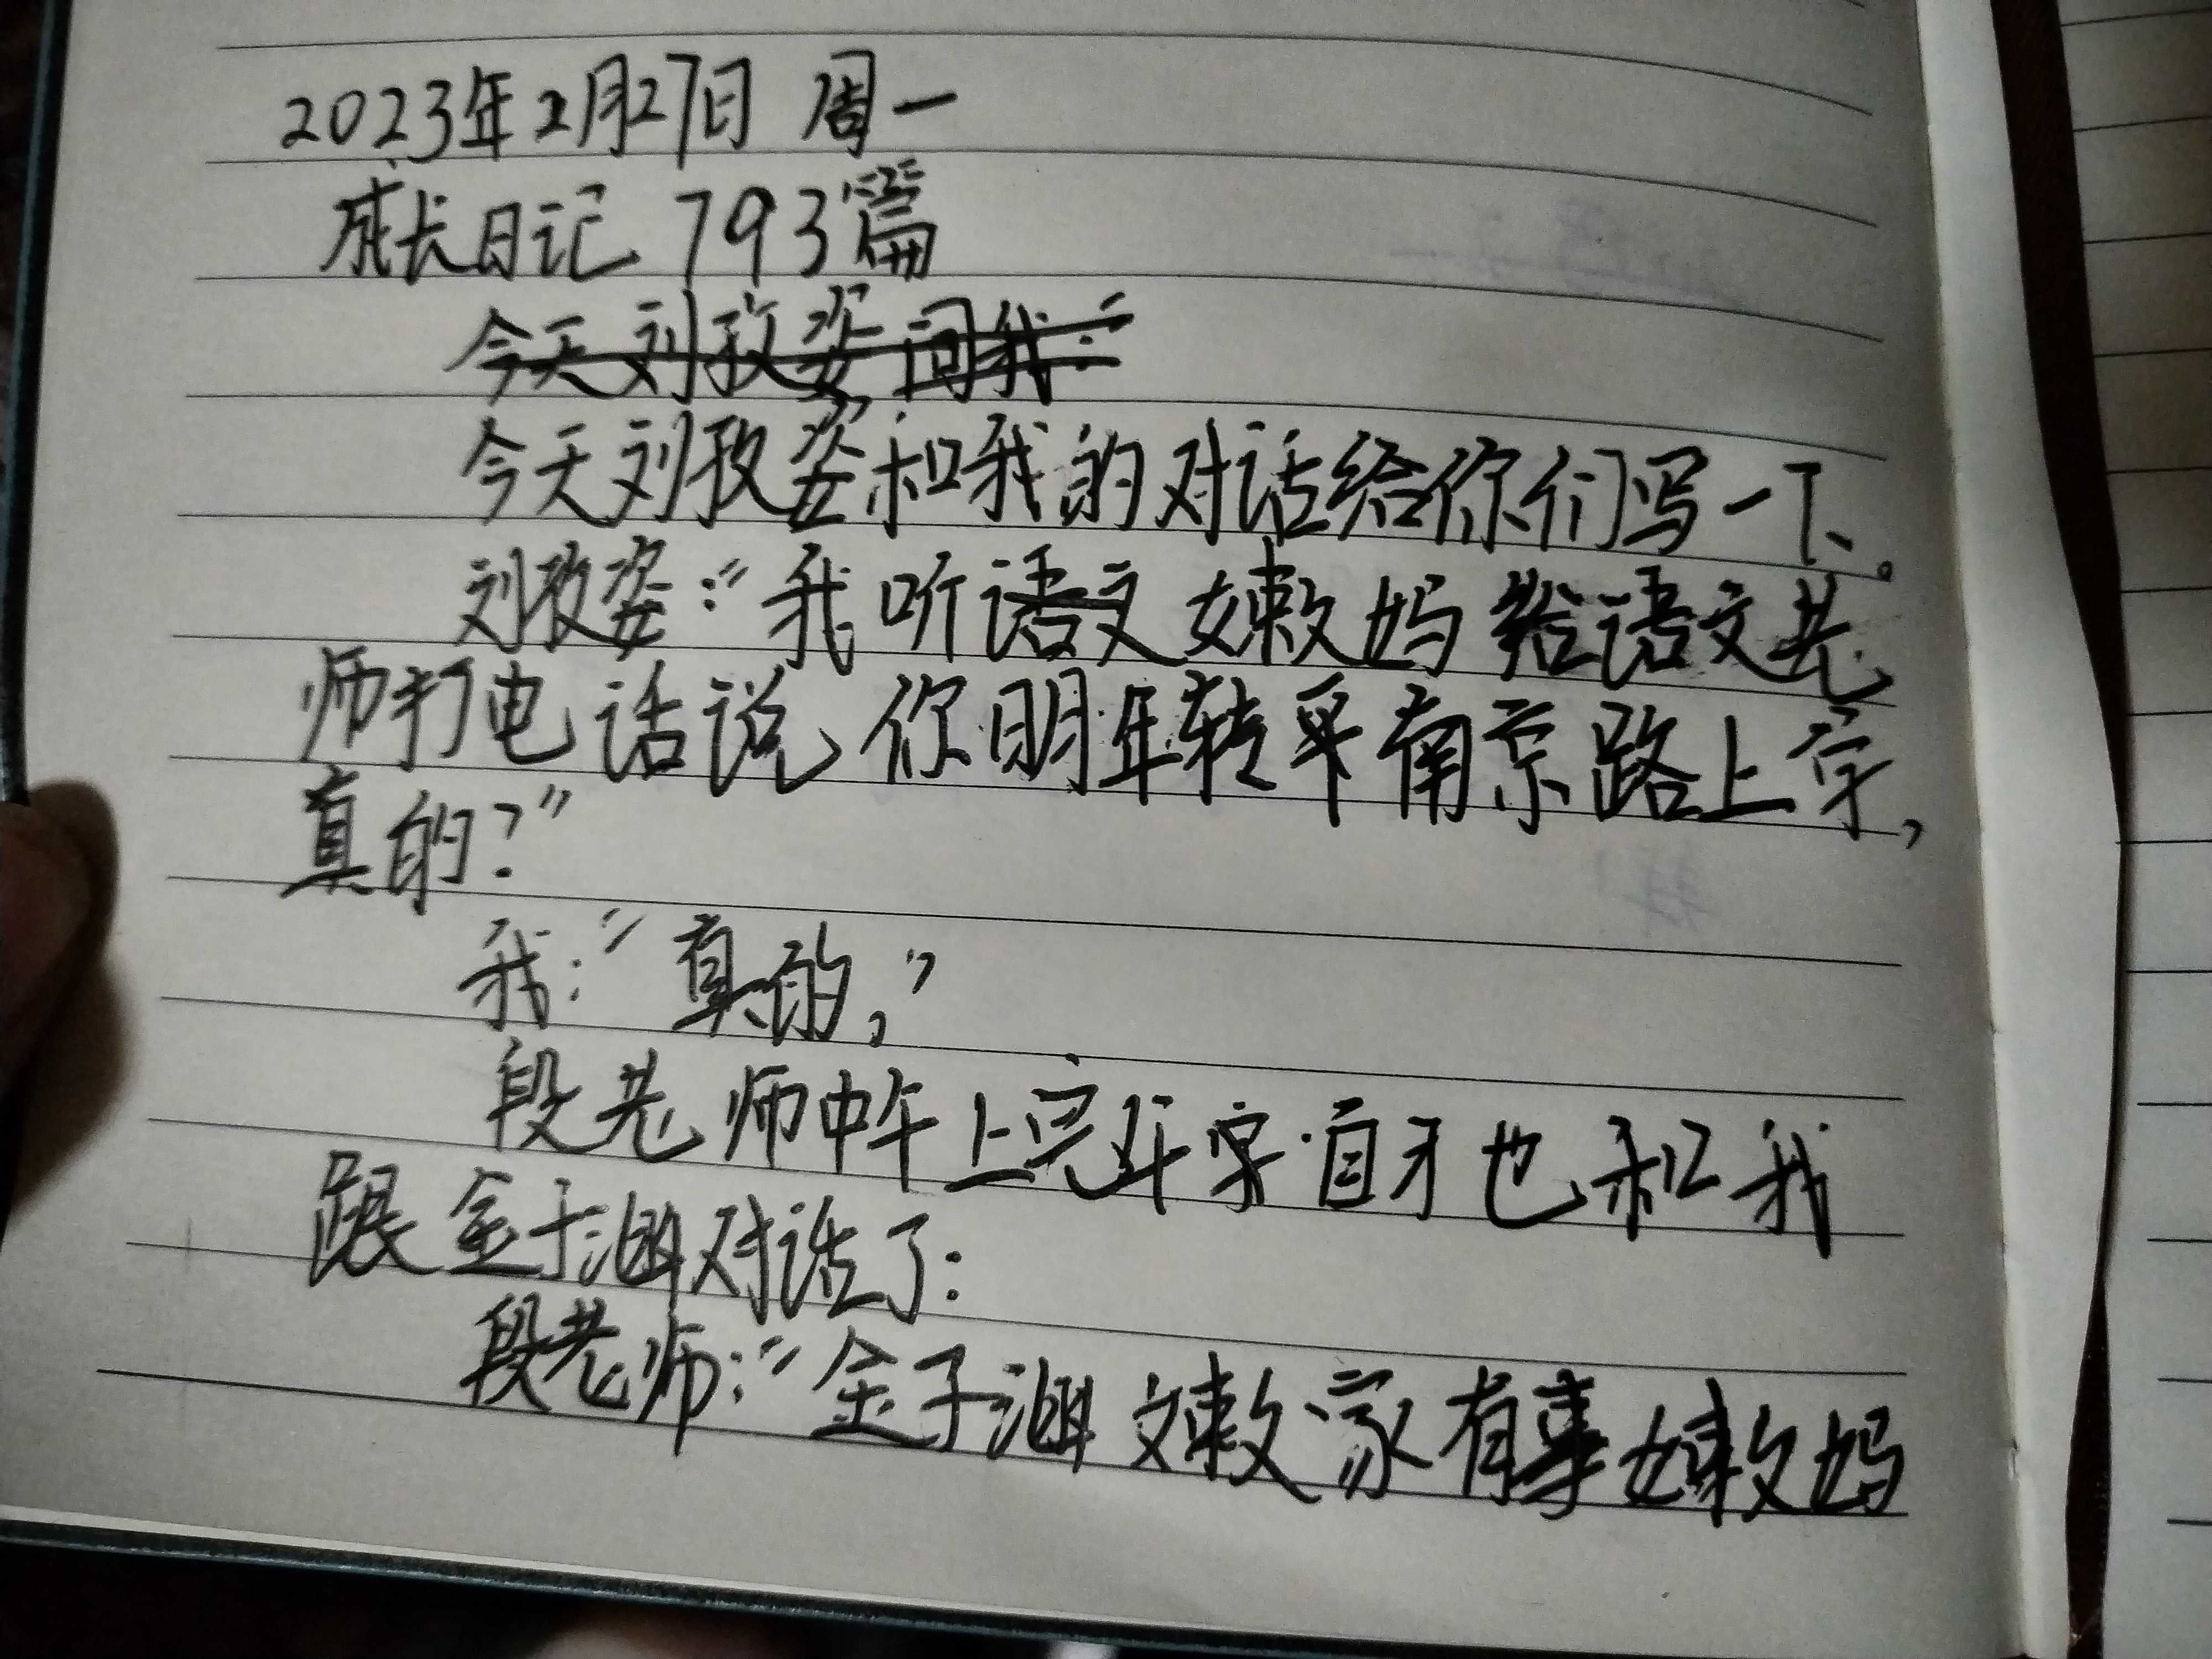 2023年2月27日 周一
成长日记 793篇
今天刘孜姿问我:“
今天刘孜姿和我的对话给你们写一下。
刘孜姿:“我听语文嫩妈给语文老
师打电话说,你明年转来南京路上学,
真的?”
我:“真的,”
段老师中午上完 也和我
跟金子涵对话了:
段老师:“金子涵嫩家有事嫩妈